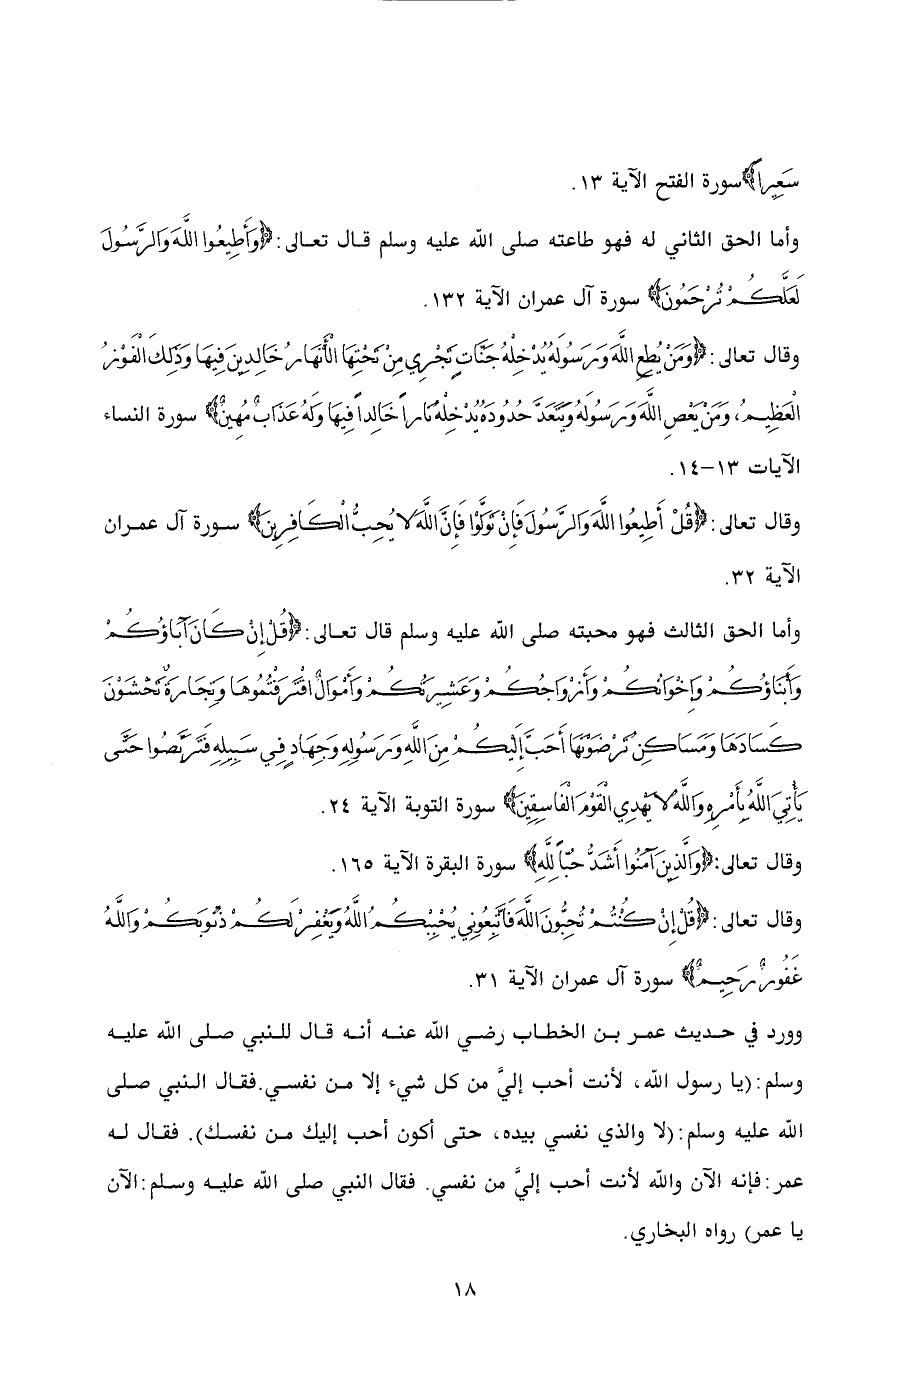 سَعِيراً﴾ سورة الفتح الآية ١٣.
وأما الحق الثاني له فهو طاعته صلى الله عليه وسلم قال تعالى: ﴿وَأَطِيعُوا اللَّهَ وَالرَّسُولَ
لَعَلَّكُمْ تُرْحَمُونَ﴾ سورة آل عمران الآية ١٣٢.
وقال تعالى: ﴿وَمَنْ يُطِعِ اللَّهَ وَرَسُولَهُ يُدْخِلْهُ جَنَّاتٍ تَجْرِي مِنْ تَحْتِهَا الْأَنْهَارُ خَالِدِينَ فِيهَا وَذَلِكَ الْفَوْزُ
الْعَظِيمُ، وَمَنْ يَعْصِ اللَّهَ وَرَسُولَهُ وَيَتَعَدَّ حُدُودَهُ يُدْخِلْهُ نَاراً خَالِداً فِيهَا وَلَهُ عَذَابٌ مُهِينٌ﴾ سورة النساء
الآيات ١٣-١٤.
وقال تعالى: ﴿قُلْ أَطِيعُوا اللَّهَ وَالرَّسُولَ فَإِنْ تَوَلَّوْا فَإِنَّ اللَّهَ لا يُحِبُّ الْكَافِرِينَ﴾ سورة آل عمران
الآية ٣٢.
وأما الحق الثالث فهو محبته صلى الله عليه وسلم قال تعالى: ﴿قُلْ إِنْ كَانَ آبَاؤُكُمْ
وَأَبْنَاؤُكُمْ وَإِخْوَانُكُمْ وَأَزْوَاجُكُمْ وَعَشِيرَتُكُمْ وَأَمْوَالٌ اقْتَرَفْتُمُوهَا وَتِجَارَةٌ تَخْشَوْنَ
كَسَادَهَا وَمَسَاكِنُ تَرْضَوْنَهَا أَحَبَّ إِلَيْكُمْ مِنَ اللَّهِ وَرَسُولِهِ وَجِهَادٍ فِي سَبِيلِهِ فَتَرَبَّصُوا حَتَّى
يَأْتِيَ اللَّهُ بِأَمْرِهِ وَاللَّهُ لا يَهْدِي الْقَوْمَ الْفَاسِقِينَ﴾ سورة التوبة الآية ٢٤.
وقال تعالى: ﴿وَالَّذِينَ آمَنُوا أَشَدُّ حُبّاً لِلَّهِ﴾ سورة البقرة الآية ١٦٥.
وقال تعالى: ﴿قُلْ إِنْ كُنْتُمْ تُحِبُّونَ اللَّهَ فَاتَّبِعُونِي يُحْبِبْكُمُ اللَّهُ وَيَغْفِرْ لَكُمْ ذُنُوبَكُمْ وَاللَّهُ
غَفُورٌ رَحِيمٌ﴾ سورة آل عمران الآية ٣١.
وورد في حديث عمر بن الخطاب رضي الله عنه أنه قال للنبي صلى الله عليه
وسلم: (يا رسول الله، لأنت أحب إليَّ من كل شيء إلا من نفسي. فقال النبي صلى
الله عليه وسلم: (لا والذي نفسي بيده، حتى أكون أحب إليك من نفسك). فقال له
عمر: فإنه الآن والله لأنت أحب إليَّ من نفسي. فقال النبي صلى الله عليه وسلم: الآن
يا عمر) رواه البخاري.
١٨